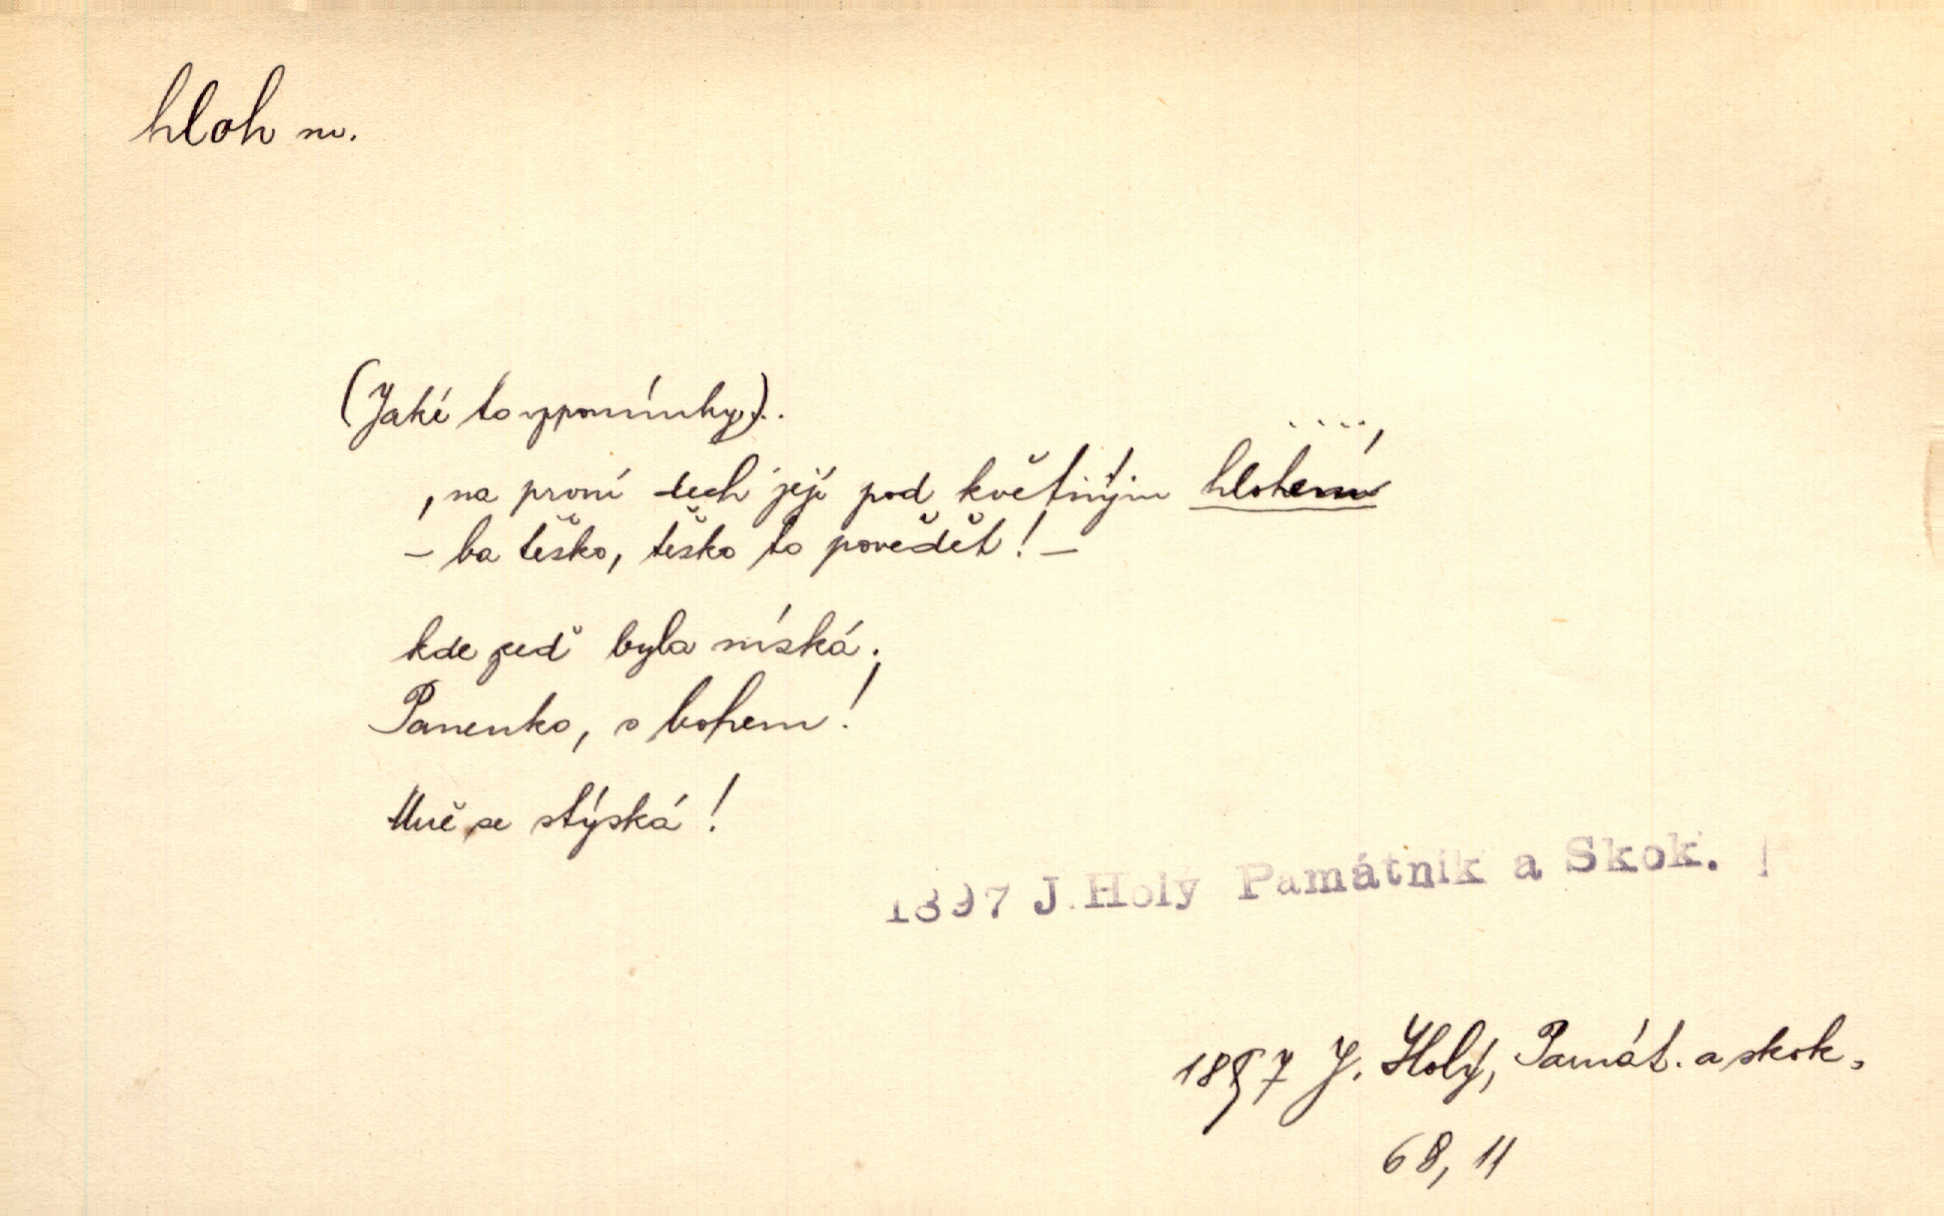 hloh m.
(Jaké to vzpomínky)..
, na první dech její pod květným hlohem
– ba těžko, těžko to povědět! –
kde zeď byla nízká.
Panenko, s bohem!
Mně se stýská!
1897 J. Holý Památník a Skok.
1897 J. Holý, Památ. a skok.
68, 11